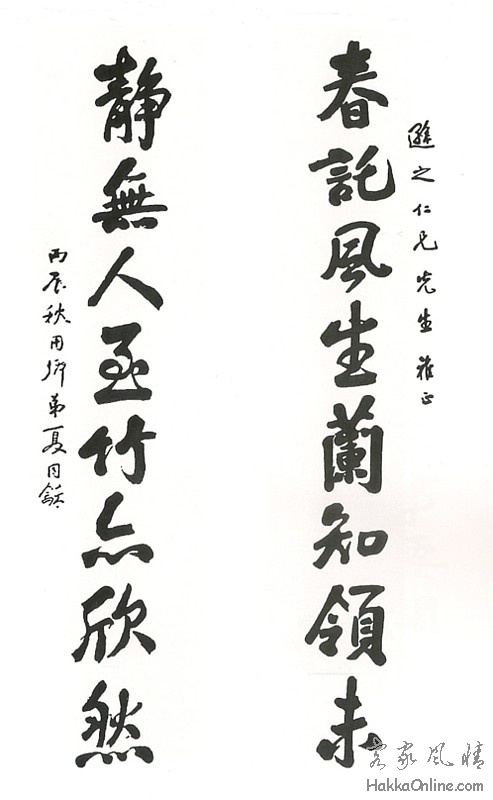 遯之仁兄先生雅正
春託風生蘭知領未
靜無人至竹亦欣然
丙辰秋用卿弟夏同龢
客家风情
HakkaOnline.com